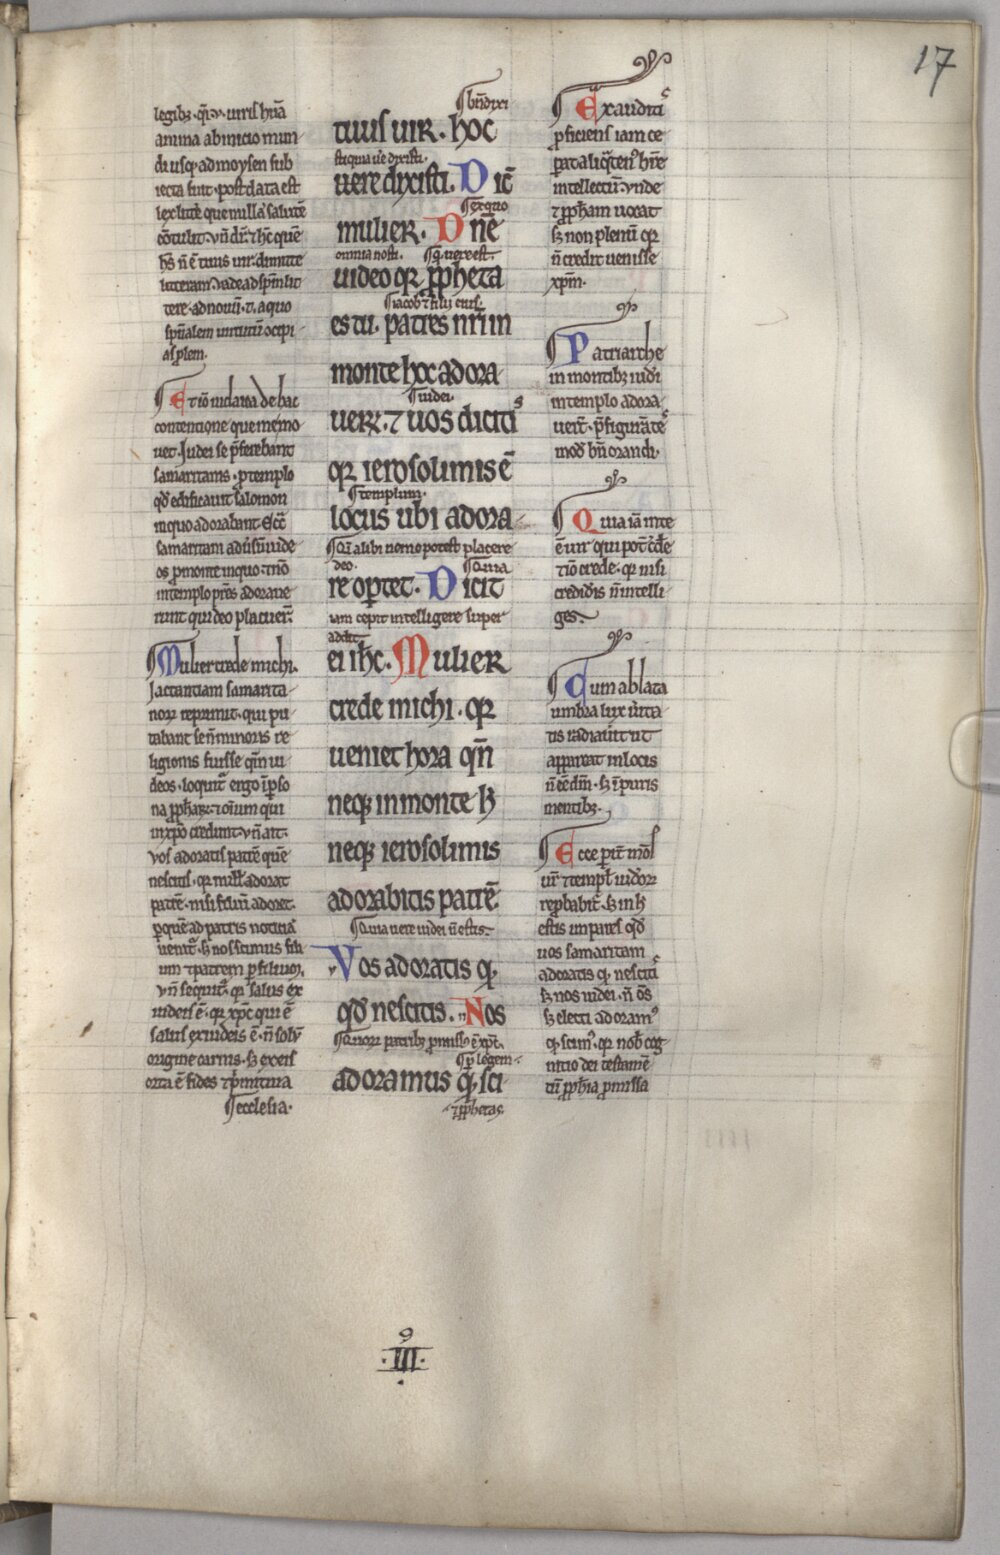 17
legibꝫ. qͣ. v. uiris huͣ
anima ab inicio mun
di usqꝫ ad moysen sub
iecta fuit. post data est
lex
cōtulit. vn̄ dr̄. ⁊ hc̄ quē
hs̄ n̄ ē tuus uir. dimitte
litteram. vade ad spm̄ lit
tere.
sp̄ualem
as plem.
Et iō iudaica de hac
contencione que me mo
uet. Iudei se p̄ferebant
samaritanis. ꝓ templo
qd̄ edificauit salomon
in quo adorabant. Et cͣ
samaritani aduersum iude
os ꝓ monte in quo. ⁊ n̄ iō
in templo pr̄es adoraue
runt qui deo placuer̄t.
Mulier crede michi.
Iactantiam samarita
noꝝ reprimit. qui pu
tabant se n̄ minoris re
ligionis fuisse qm̄ iu
deos. loquit᷑ ergo ī ꝑso
na ꝓph̄aꝝ. ⁊ oīum qui
in xp̄o credunt. vn̄ ait.
vos adoratis patrē quē
nescitis. qꝛ null᷒ adorat
patrē. nisi filium adoret.
ꝑ quē ad patris noticiā
uenit᷑. sꝫ nos scimus fili
um ⁊ patrem ꝑ filium.
vn̄ sequit᷑. qꝛ salus ex
iudeis ē. qꝛ xp̄c qui ē
salus ex iudeis ē. n̄ solū
origine carnis. sꝫ ex eis
orta ē fides ⁊ p̄mitiua
ecclesia.
bn̄dixi
tuus uir. hoc
sti quia u͛e dixisti.
uere dixisti. Dic̄
ex quo
mulier. Dn̄e
omnia nosti. qͣ uere est.
uideo qꝛ ꝓpheta
iacob ⁊ filii eius.
es tu. patres nr̄i in
monte hoc adora
iudei
uer̄t. ⁊ uos dicitis
qꝛ ierosolimis ē
templum.
locus ubi adora
Qͥ alibi nemo potest placere
deo. Quia
re oꝑtet. Dicit
iam cepit intelligere super
addit
ei ih̄c. Mulier
crede michi. qꝛ
ueniet hora qn̄
neqꝫ in monte h̄
neqꝫ ierosolimis
adorabitis patrē.
Quia uere iudei n̄ estis.
Vos adoratis qꝫ
qd̄ nescitis. Nos
Quoꝝ patribꝫ ꝓmiss᷒ ē xp̄c.
ꝑ legem
adoramus qd̄. sci
⁊ ꝓphetas
Exauditis
ꝓficiens iam ce
perat aliqͣten᷒ h̄re
intellectū. vnde
⁊ ꝓph̄am uocat
sꝫ non plenū qꝛ
n̄ credit uenisse
xp̄m.
Patriarche
in montibꝫ iudei
in templo adora
uert̄. p̄figurātes
modū bn̄ orandi.
Quia iā inte
ē uir qui pot̄ c̄de
⁊ iō crede. qꝛ nisi
credideris n̄ intelli
ges.
Cum ablata
umbra lux u͛ita
tis radiauit ut
appareat in locis
n̄ ēē dm̄. sꝫ ī puris
mentibꝫ.
Ecce ꝑit mōs
ur̄ ⁊ templ̄ iudeoꝝ
reꝓbabit᷑. sꝫ in h̄
estis impares qd̄
uos samaritani
adoratis qꝫ nescitis
sꝫ nos iudei. n̄ om̄s
sꝫ electi adoram᷒
qꝫ scim᷒. qꝛ nob̄ cog
nitio dei testam̄
⁊ū ꝓph̄ia ꝓmissa
.III.